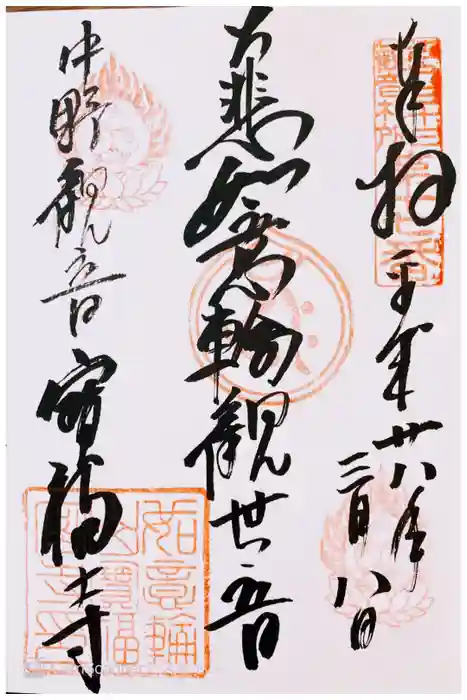 奉拝 平成廿八年
三月八日
大悲如意輪観世音
中野観音 宝福寺
如意輪
山寶福
寺之印